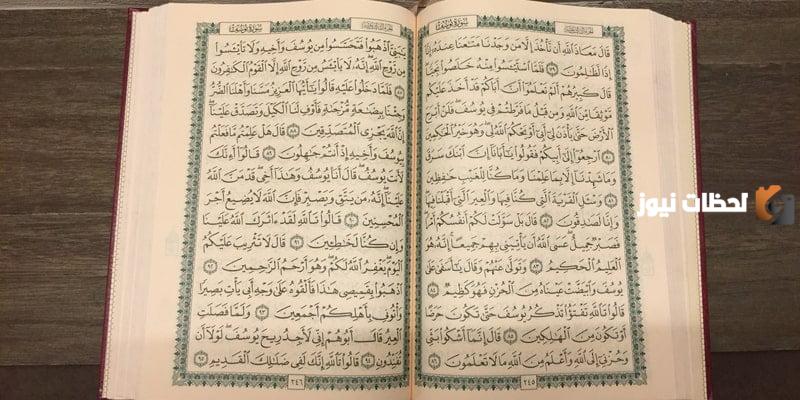 سُورَةُ يُوسُفَ
قَالَ مَعَاذَ ٱللَّهِ أَن نَّأْخُذَ إِلَّا مَن وَجَدْنَا مَتَٰعَنَا عِندَهُۥٓ إِنَّآ
إِذًا لَّظَٰلِمُونَ ٧٩ فَلَمَّا ٱسْتَيْـَٔسُوا۟ مِنْهُ خَلَصُوا۟ نَجِيًّا
قَالَ كَبِيرُهُمْ أَلَمْ تَعْلَمُوٓا۟ أَنَّ أَبَاكُمْ قَدْ أَخَذَ عَلَيْكُم
مَّوْثِقًا مِّنَ ٱللَّهِ وَمِن قَبْلُ مَا فَرَّطتُمْ فِى يُوسُفَ فَلَنْ أَبْرَحَ
ٱلْأَرْضَ حَتَّىٰ يَأْذَنَ لِىٓ أَبِىٓ أَوْ يَحْكُمَ ٱللَّهُ لِى وَهُوَ خَيْرُ ٱلْحَٰكِمِينَ
٨٠ ٱرْجِعُوٓا۟ إِلَىٰٓ أَبِيكُمْ فَقُولُوا۟ يَٰٓأَبَانَآ إِنَّ ٱبْنَكَ سَرَقَ
وَمَا شَهِدْنَآ إِلَّا بِمَا عَلِمْنَا وَمَا كُنَّا لِلْغَيْبِ حَٰفِظِينَ
٨١ وَسْـَٔلِ ٱلْقَرْيَةَ ٱلَّتِى كُنَّا فِيهَا وَٱلْعِيرَ ٱلَّتِىٓ أَقْبَلْنَا فِيهَا
وَإِنَّا لَصَٰدِقُونَ ٨٢ قَالَ بَلْ سَوَّلَتْ لَكُمْ أَنفُسُكُمْ أَمْرًا
فَصَبْرٌ جَمِيلٌ عَسَى ٱللَّهُ أَن يَأْتِيَنِى بِهِمْ جَمِيعًا إِنَّهُۥ هُوَ
ٱلْعَلِيمُ ٱلْحَكِيمُ ٨٣ وَتَوَلَّىٰ عَنْهُمْ وَقَالَ يَٰٓأَسَفَىٰ عَلَىٰ
يُوسُفَ وَٱبْيَضَّتْ عَيْنَاهُ مِنَ ٱلْحُزْنِ فَهُوَ كَظِيمٌ ٨٤
قَالُوا۟ تَٱللَّهِ تَفْتَؤُا۟ تَذْكُرُ يُوسُفَ حَتَّىٰ تَكُونَ حَرَضًا
أَوْ تَكُونَ مِنَ ٱلْهَٰلِكِينَ ٨٥ قَالَ إِنَّمَآ أَشْكُوا۟ بَثِّى
وَحُزْنِىٓ إِلَى ٱللَّهِ وَأَعْلَمُ مِنَ ٱللَّهِ مَا لَا تَعْلَمُونَ ٨٦
٢٤٥
سُورَةُ يُوسُفَ
يَٰبَنِىَّ ٱذْهَبُوا۟ فَتَحَسَّسُوا۟ مِن يُوسُفَ وَأَخِيهِ وَلَا تَا۟يْـَٔسُوا۟
مِن رَّوْحِ ٱللَّهِ إِنَّهُۥ لَا يَا۟يْـَٔسُ مِن رَّوْحِ ٱللَّهِ إِلَّا ٱلْقَوْمُ ٱلْكَٰفِرُونَ
٨٧ فَلَمَّا دَخَلُوا۟ عَلَيْهِ قَالُوا۟ يَٰٓأَيُّهَا ٱلْعَزِيزُ مَسَّنَا وَأَهْلَنَا ٱلضُّرُّ
وَجِئْنَا بِبِضَٰعَةٍ مُّزْجَىٰةٍ فَأَوْفِ لَنَا ٱلْكَيْلَ وَتَصَدَّقْ عَلَيْنَآ
إِنَّ ٱللَّهَ يَجْزِى ٱلْمُتَصَدِّقِينَ ٨٨ قَالَ هَلْ عَلِمْتُم مَّا فَعَلْتُم
بِيُوسُفَ وَأَخِيهِ إِذْ أَنتُمْ جَٰهِلُونَ ٨٩ قَالُوٓا۟ أَءِنَّكَ
لَأَنتَ يُوسُفُ قَالَ أَنَا۠ يُوسُفُ وَهَٰذَآ أَخِى قَدْ مَنَّ ٱللَّهُ
عَلَيْنَآ إِنَّهُۥ مَن يَتَّقِ وَيَصْبِرْ فَإِنَّ ٱللَّهَ لَا يُضِيعُ أَجْرَ
ٱلْمُحْسِنِينَ ٩٠ قَالُوا۟ تَٱللَّهِ لَقَدْ ءَاثَرَكَ ٱللَّهُ عَلَيْنَا
وَإِن كُنَّا لَخَٰطِـِٔينَ ٩١ قَالَ لَا تَثْرِيبَ عَلَيْكُمُ
ٱلْيَوْمَ يَغْفِرُ ٱللَّهُ لَكُمْ وَهُوَ أَرْحَمُ ٱلرَّٰحِمِينَ ٩٢
ٱذْهَبُوا۟ بِقَمِيصِى هَٰذَا فَأَلْقُوهُ عَلَىٰ وَجْهِ أَبِى يَأْتِ بَصِيرًا
وَأْتُونِى بِأَهْلِكُمْ أَجْمَعِينَ ٩٣ وَلَمَّا فَصَلَتِ
ٱلْعِيرُ قَالَ أَبُوهُمْ إِنِّى لَأَجِدُ رِيحَ يُوسُفَ لَوْلَآ أَن
تُفَنِّدُونِ ٩٤ قَالُوا۟ تَٱللَّهِ إِنَّكَ لَفِى ضَلَٰلِكَ ٱلْقَدِيمِ ٩٥
٢٤٦
لحظات نيوز